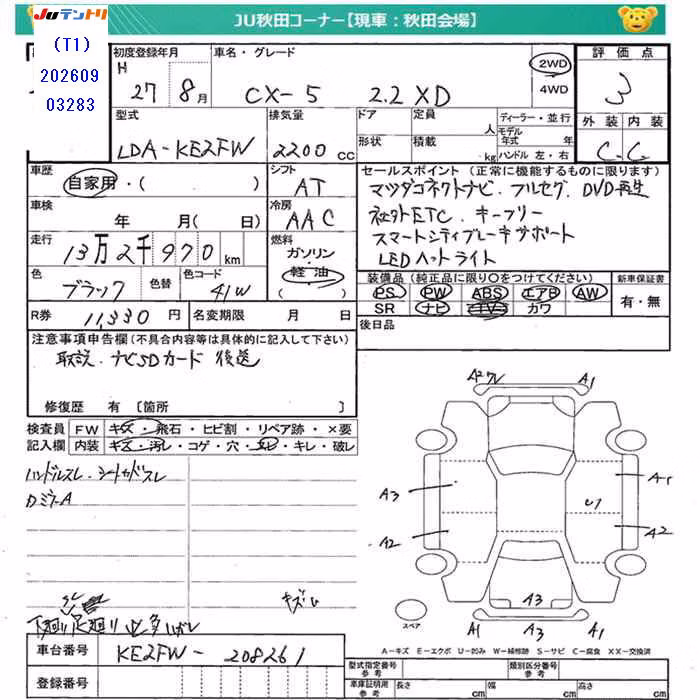 JUテントリ
JU秋田コーナー【現車：秋田会場】
(T1)
202609
03283
初度登録年月
H 27 8月
車名・グレード
CX-5 2.2XD
2WD
4WD
評価点
3
型式
LDA-KE2FW
排気量
2200 CC
ドア
形状
定員 人
積載 kg
ディーラー・並行
モデル年式 年
ハンドル 左・右
外装 内装
C C
車歴
自家用・( )
シフト
AT
セールスポイント（正常に機能するものに限ります）
マツダコネクトナビ、フルセグ、DVD再生
社外ETC、キーフリー
スマートシティブレーキサポート
LEDヘッドライト
車検 年 月(日)
冷房
AAC
走行
13万2千970km
燃料
ガソリン
・
軽油
( )
色
ブラック
色替
色コード
41W
装備品（純正品に限り〇をつけてください） 新車保証書
PS PW ABS エアB AW 有・無
SR ナビ TV カワ
R券 11,330円 名変期限 月 日
後日品
注意事項申告欄(不具合内容等は具体的に記入して下さい)
取説、ナビSDカード 後送
修復歴 有 [箇所 ]
検査員 FW キズ・飛石・ヒビ割・リペア跡・×要
記入欄 内装 キズ・汚レ・コゲ・穴・スレ・キレ・破レ
ハンドルスレ・シートカバースレ
DミラーA
キズム
下廻り足廻り
A2 A1
A3 U1 A1
A2 A2
A3
A1 A3 A1
スペア
A－キズ E－エクボ U－凹み W－補修跡 S－サビ C－腐食 XX－交換済
車台番号 KE2FW-208261
登録番号
型式指定番号 参考 類別区分番号 参考
車庫証明用 参考 長さ cm 幅 cm 高さ cm